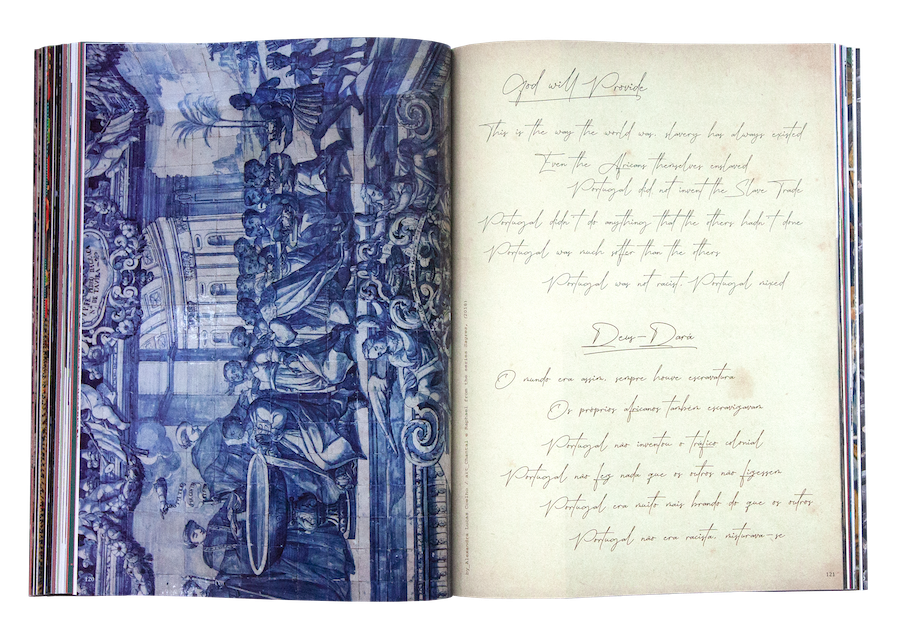 120
God will Provide
This is the way the world was, slavery has always existed
Even the Africans themselves enslaved
Portugal did not invent the Slave Trade
Portugal didn't do anything that the others hadn't done
Portugal was much softer than the others
Portugal was not racist, Portugal mixed
Deus-Dará
O mundo era assim, sempre houve escravatura
Os próprios africanos também escravizavam
Portugal não inventou o tráfico colonial
Portugal não fez nada que os outros não fizessem
Portugal era muito mais brando do que os outros
Portugal não era racista, misturava-se
121
by_Alexandra Lucas Coelho / art_Chantal & Raphael from the series (2016)